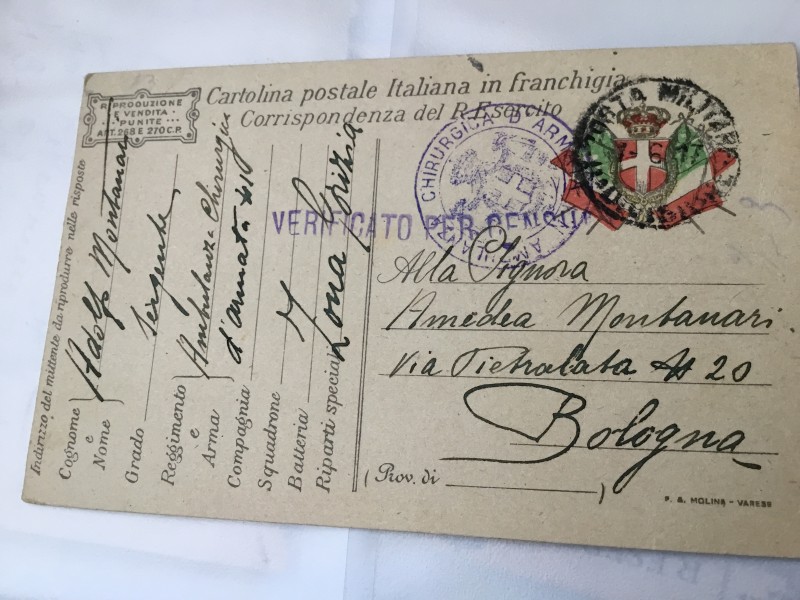 RIPRODUZIONE
E VENDITA
PUNITE
ART. 268 E 270 C.P.
Cartolina postale Italiana in franchigia
Corrispondenza del R. Esercito
CHIRURGICA D'ARM
AMBULANZA
POSTA MILITARE
VERIFICATO PER CENSURA
Indirizzo del mittente da riprodurre nelle risposte
Cognome e Nome Adolfo Montanari
Grado Sergente
Reggimento e Arma Ambulanza Chirurgica
Compagnia d'armata
Squadrone
Batteria
Riparti speciali Zona Gorizia
Alla Signora
Amedea Montanari
Via Pietralata N 20
Bologna
(Prov. di )
P. A. MOLINA - VARESE